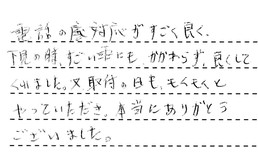 電話の応対がすごく良く、
下見の時、すごい雨にもかかわらず、良くして
くれました。又取付の日も、もくもくと
やっていただき、本当にありがとう
ございました。